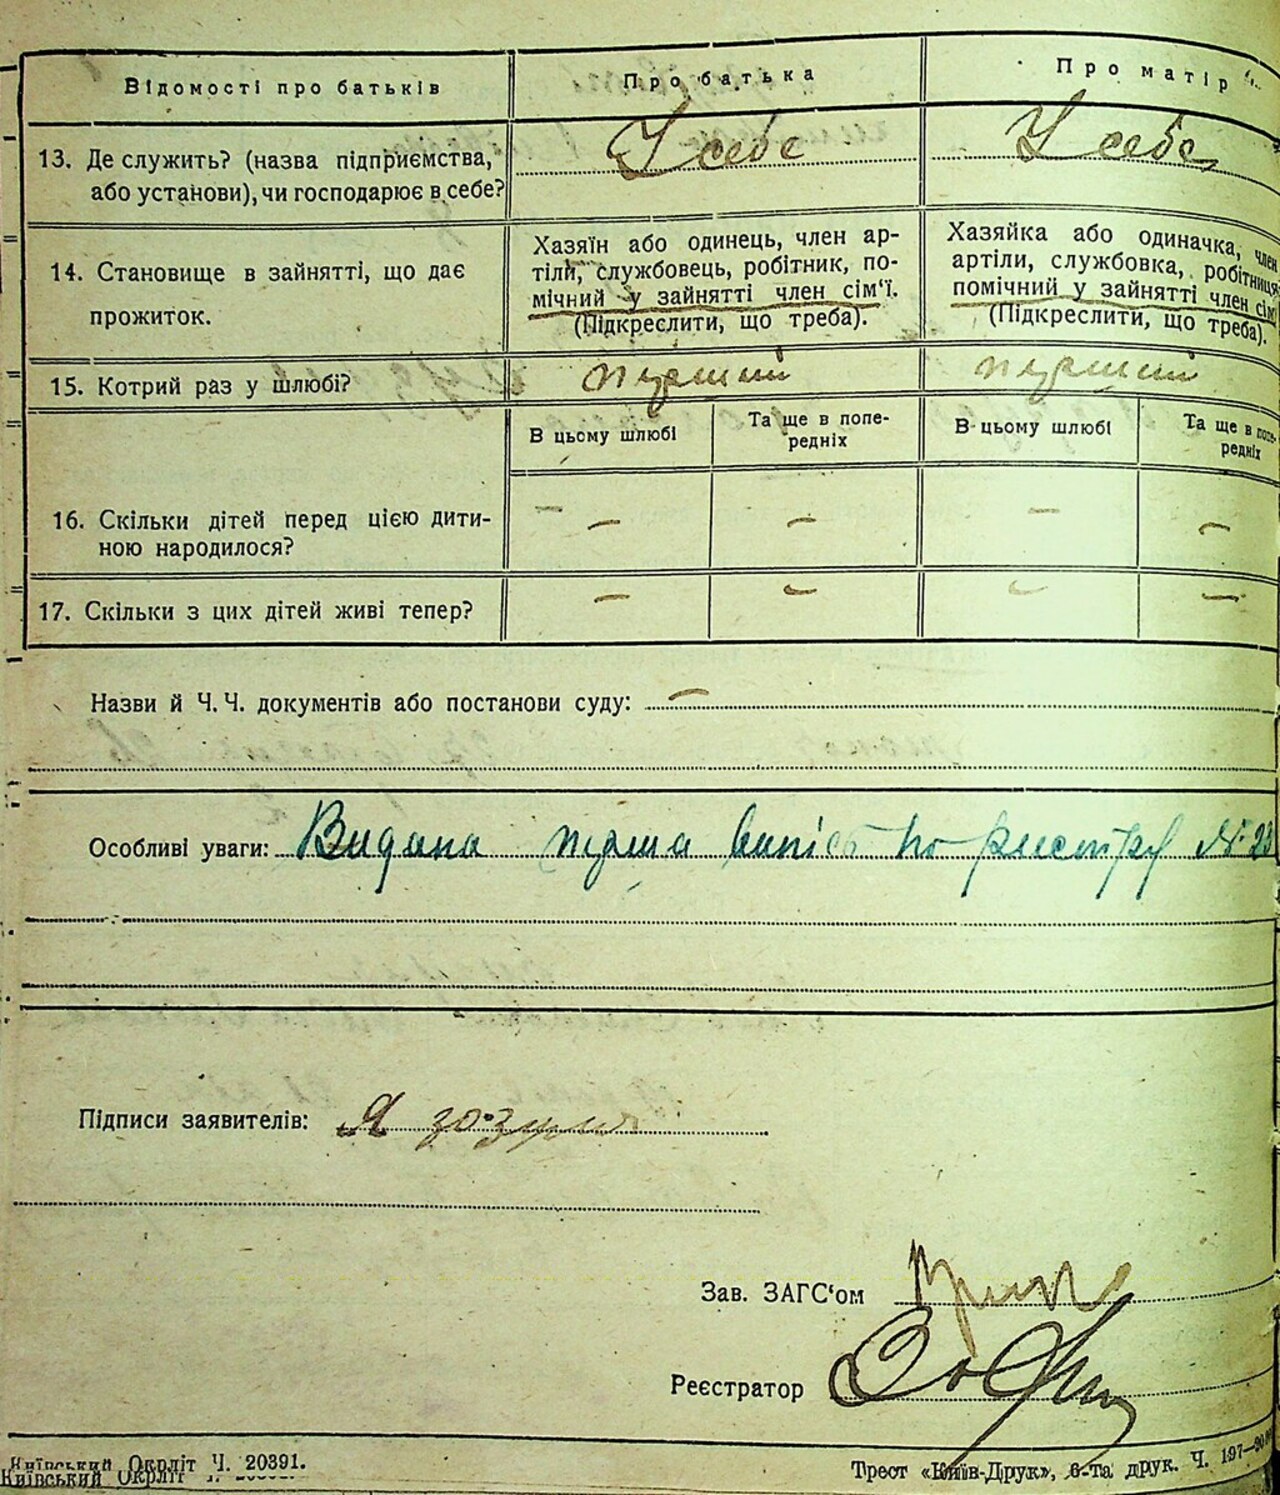 Відомості про батьків
Про батька
Про матір
13. Де служить? (назва підприємства,
або установи), чи господарює в себе?
У себе
У себе
14. Становище в зайнятті, що дає
прожиток.
Хазяїн або одинець, член ар-
тілі, службовець, робітник, по-
мічний у зайнятті член сім'ї.
(Підкреслити, що треба).
Хазяйка або одиначка, член
артіли, службовка, робітниця,
помічний у зайнятті член сім'ї
(Підкреслити, що треба).
15. Котрий раз у шлюбі?
перший
перший
В цьому шлюбі
Та ще в попе-
редніх
В цьому шлюбі
Та ще в попе-
редніх
16. Скільки дітей перед цією дити-
ною народилося?
— — — —
17. Скільки з цих дітей живі тепер?
— — — —
Назви й Ч. Ч. документів або постанови суду: —
Особливі уваги: Видана перша випись по реєстру № 23
Підписи заявителів: Я зозуля
Зав. ЗАГС'ом
Реєстратор
Київський Окрліт Ч. 20391.
Київський Окрліт
Трест «Київ-Друк», 6-та друк. Ч. 197—